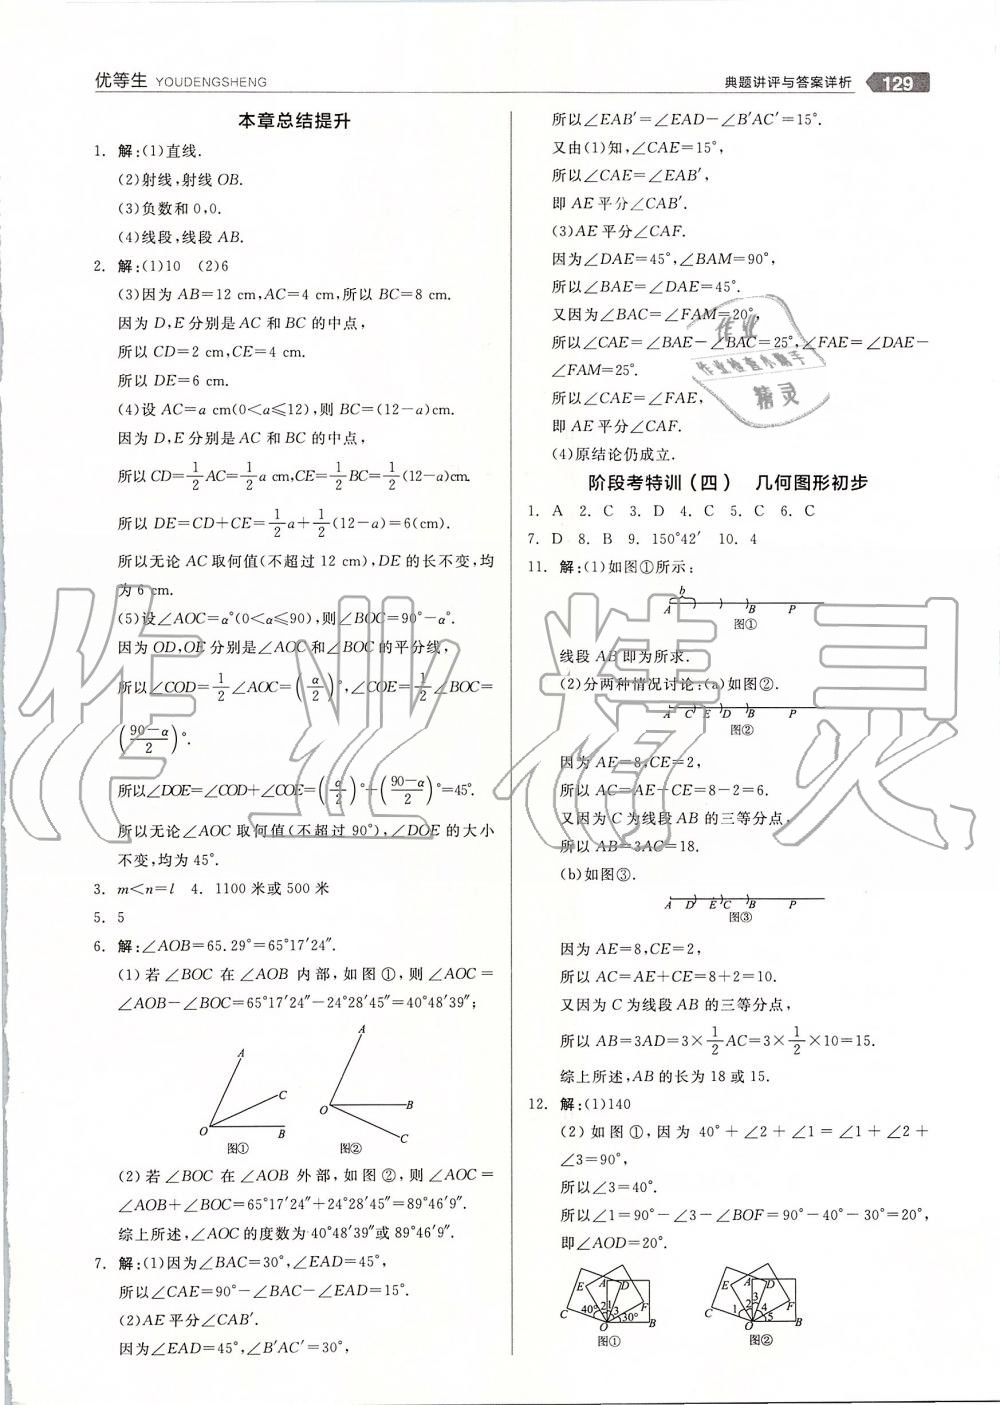 优等生 YOUDENGSHENG
典题讲评与答案详析 129
本章总结提升
1. 解:(1)直线.
(2)射线,射线 OB.
(3)负数和 0,0.
(4)线段,线段 AB.
2. 解:(1)10 (2)6
(3)因为 AB=12 cm,AC=4 cm,所以 BC=8 cm.
因为 D,E 分别是 AC 和 BC 的中点,
所以 CD=2 cm,CE=4 cm.
所以 DE=6 cm.
(4)设 AC=a cm(0<a≤12),则 BC=(12-a)cm.
因为 D,E 分别是 AC 和 BC 的中点,
所以 CD=1/2 AC=1/2 a cm,CE=1/2 BC=1/2(12-a)cm.
所以 DE=CD+CE=1/2 a+1/2(12-a)=6(cm).
所以无论 AC 取何值(不超过 12 cm),DE 的长不变,均
为 6 cm.
(5)设∠AOC=α°(0<α≤90),则∠BOC=90°-α°.
因为 OD,OE 分别是∠AOC 和∠BOC 的平分线,
所以∠COD=1/2∠AOC=(α/2)°,∠COE=1/2∠BOC=
((90-α)/2)°.
所以∠DOE=∠COD+∠COE=(α/2)°+((90-α)/2)°=45°.
所以无论∠AOC 取何值(不超过 90°),∠DOE 的大小
不变,均为 45°.
3. m<n=l 4. 1100 米或 500 米
5. 5
6. 解:∠AOB=65.29°=65°17′24″.
(1)若∠BOC 在∠AOB 内部,如图①,则∠AOC=
∠AOB-∠BOC=65°17′24″-24°28′45″=40°48′39″;
A C O B 图①
A O B C 图②
(2)若∠BOC 在∠AOB 外部,如图②,则∠AOC=
∠AOB+∠BOC=65°17′24″+24°28′45″=89°46′9″.
综上所述,∠AOC 的度数为 40°48′39″或 89°46′9″.
7. 解:(1)因为∠BAC=30°,∠EAD=45°,
所以∠CAE=90°-∠BAC-∠EAD=15°.
(2)AE 平分∠CAB′.
因为∠EAD=45°,∠B′AC′=30°,
所以∠EAB′=∠EAD-∠B′AC′=15°.
又由(1)知,∠CAE=15°,
所以∠CAE=∠EAB′,
即 AE 平分∠CAB′.
(3)AE 平分∠CAF.
因为∠DAE=45°,∠BAM=90°,
所以∠BAE=∠DAE=45°.
又因为∠BAC=∠FAM=20°,
所以∠CAE=∠BAE-∠BAC=25°,∠FAE=∠DAE-
∠FAM=25°.
所以∠CAE=∠FAE,
即 AE 平分∠CAF.
(4)原结论仍成立.
阶段考特训(四) 几何图形初步
1. A 2. C 3. D 4. C 5. C 6. C
7. D 8. B 9. 150°42′ 10. 4
11. 解:(1)如图①所示:
b
A B P
图①
线段 AB 即为所求.
(2)分两种情况讨论:(a)如图②.
A C E D B P
图②
因为 AE=8,CE=2,
所以 AC=AE-CE=8-2=6.
又因为 C 为线段 AB 的三等分点,
所以 AB=3AC=18.
(b)如图③.
A D E C B P
图③
因为 AE=8,CE=2,
所以 AC=AE+CE=8+2=10.
又因为 C 为线段 AB 的三等分点,
所以 AB=3AD=3×1/2 AC=3×1/2×10=15.
综上所述,AB 的长为 18 或 15.
12. 解:(1)140
(2)如图①,因为 40°+∠2+∠1=∠1+∠2+
∠3=90°,
所以∠3=40°.
所以∠1=90°-∠3-∠BOF=90°-40°-30°=20°,
即∠AOD=20°.
E A D C 40° 2 1 3 F 30° O B 图①
E A D C 1 2 3 4 5 F O B 图②
作业
作业检查小助手
精灵
作业精灵